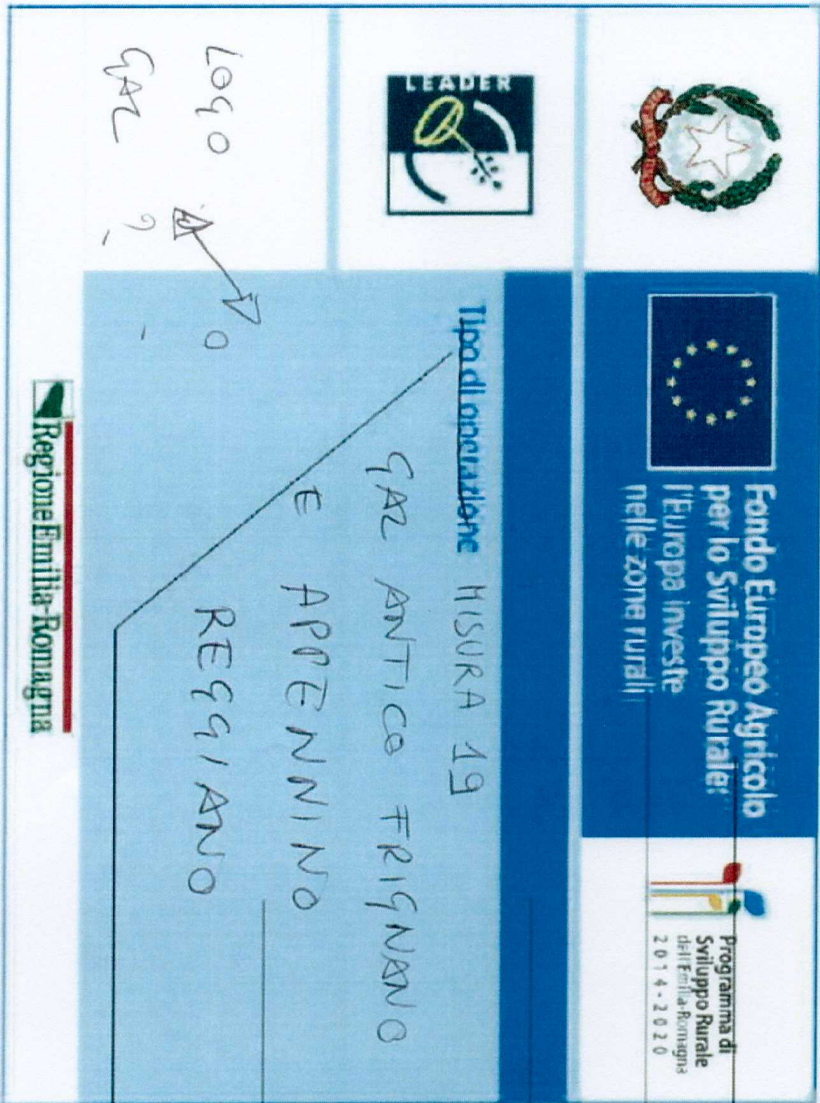 Fondo Europeo Agricolo
per lo Sviluppo Rurale:
l'Europa investe
nelle zone rurali
Programma di
Sviluppo Rurale
dell'Emilia-Romagna
2014-2020
LEADER
Tipo di operazione MISURA 19
GAL ANTICO FRIGNANO
E APPENNINO
REGGIANO
LOGO
GAL ?
Regione Emilia-Romagna